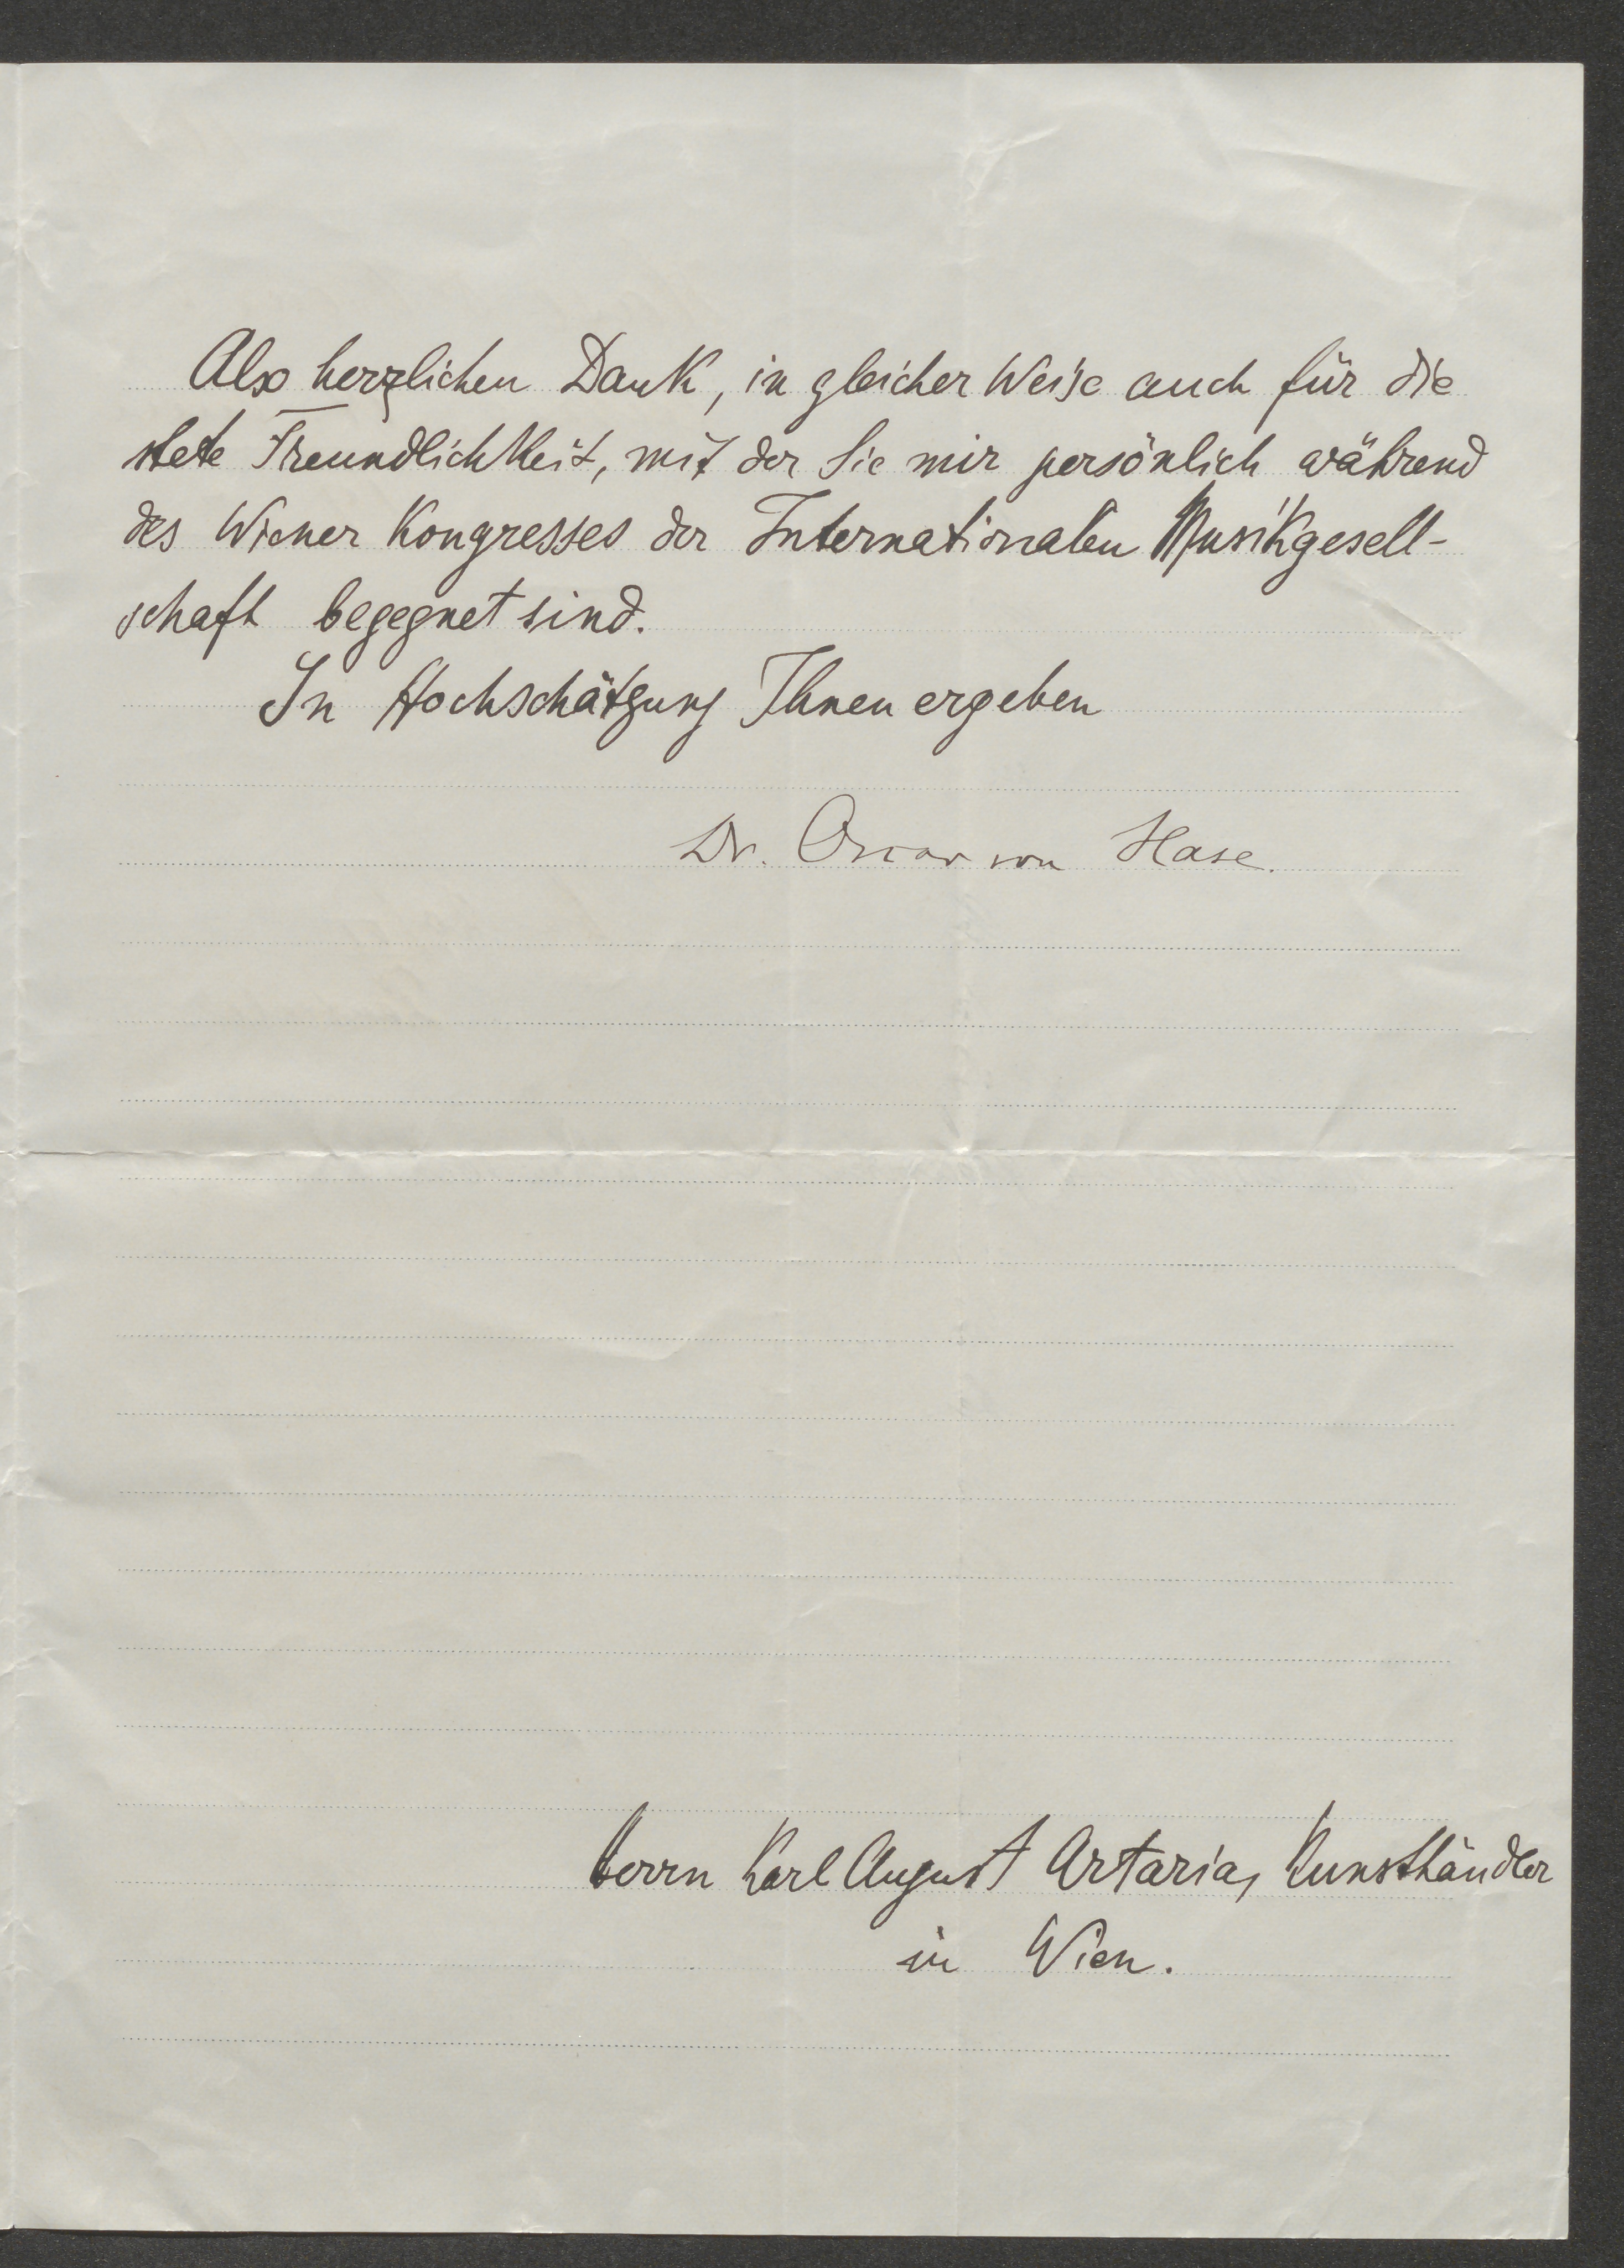 Also herzlichen Dank, in gleicher Weise auch für die
stete Freundlichkeit, mit der Sie mir persönlich während
des Wiener Kongresses der Internationalen Musikgesell-
schaft begegnet sind.
In Hochschätzung Ihnen ergeben
Dr. Oscar von Hase.
Herrn Karl August Artaria, Kunsthändler
in Wien.